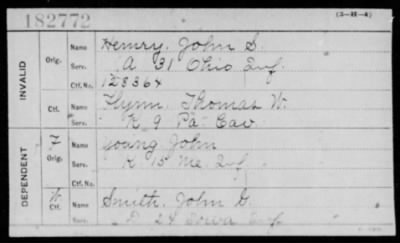 182772
(3-H-4)
INVALID
Orig.
Name Hemry, John S.
Serv. A 31 Ohio Inf.
Ctf. No. 128364
Ctf.
Name Flynn, Thomas W.
Serv. K 9 Pa. Cav.
DEPENDENT
Orig.
Name Young John
Serv. K. 15 Me. Inf
Ctf. No.
Ctf.
Name Smith, John G.
Serv. D 24 Iowa Inf.